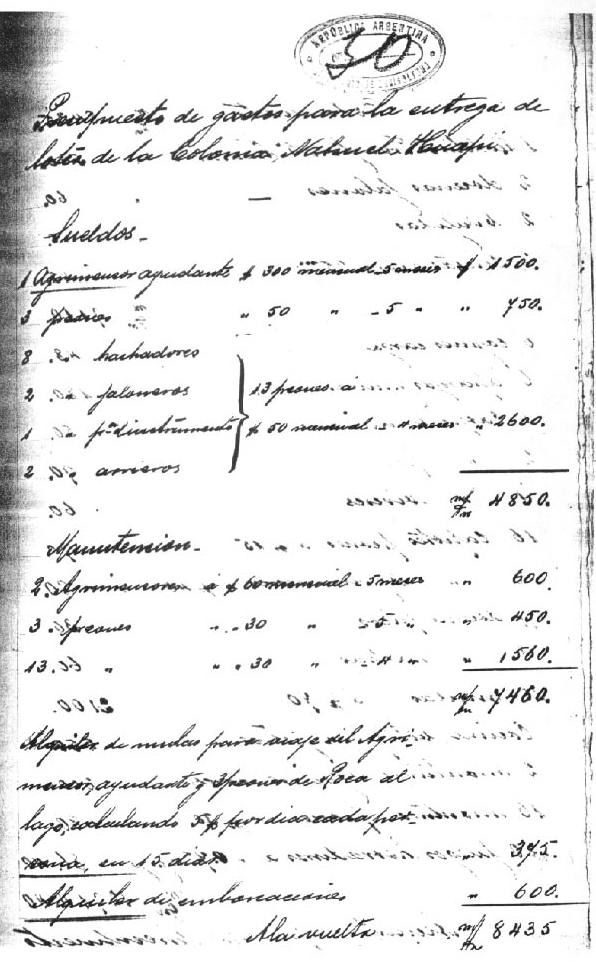 REPUBLICA ARGENTINA
30
Presupuesto de gastos para la entrega de
lotes de la Colonia Nahuel Huapi
—
Sueldos -
1 Agrimensor ayudante $ 300 mensual - 5 meses $ 1500.
3 peones " 50 " - 5 " " 750.
8 hachadores
2 jaloneros
1 pª instrumento
2 arrieros
13 peones á
$ 50 mensual - 4 meses " 2600.
m/n 4850.
Manutencion -
2. Agrimensores a $ 60 mensual - 5 meses " 600
3. peones " " 30 " - 5 " " 450
13. " " " 30 " 4 " " 1560.
m/n 7460.
Alquiler de mulas para viaje del Agri-
mensor, ayudante y 3 peones de Roca al
lago, calculando 5 $ por dia cada per-
sona, en 15 dias 375.
Alquiler de embarcaciones " 600.
A la vuelta m/n 8435